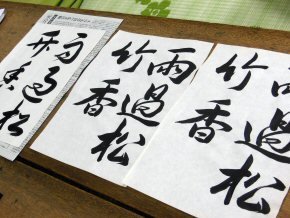 雨過松
竹香
雨過松
竹香
雨過松
竹香